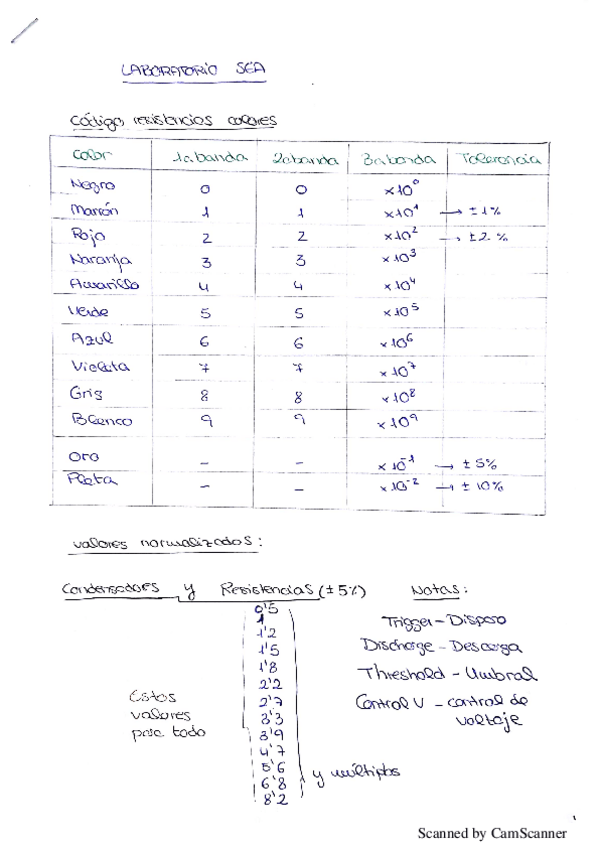 LABORATORIO SEA
Código resistencias colores
Color 1a banda 2a banda 3a banda Tolerancia
Negro 0 0 x10⁰
Marrón 1 1 x10¹ → ±1%
Rojo 2 2 x10² → ±2%
Naranja 3 3 x10³
Amarillo 4 4 x10⁴
Verde 5 5 x10⁵
Azul 6 6 x10⁶
Violeta 7 7 x10⁷
Gris 8 8 x10⁸
Blanco 9 9 x10⁹
Oro - - x10⁻¹ → ±5%
Plata - - x10⁻² → ±10%
Valores normalizados:
Condensadores y Resistencias (±5%)
0'5
1
1'2
1'5
1'8
2'2
2'7
3'3
3'9
4'7
5'6
6'8
8'2
Estos
valores
para todo
y múltiplos
Notas:
Trigger - Disparo
Discharge - Descarga
Threshold - Umbral
Control V - control de
voltaje
Scanned by CamScanner